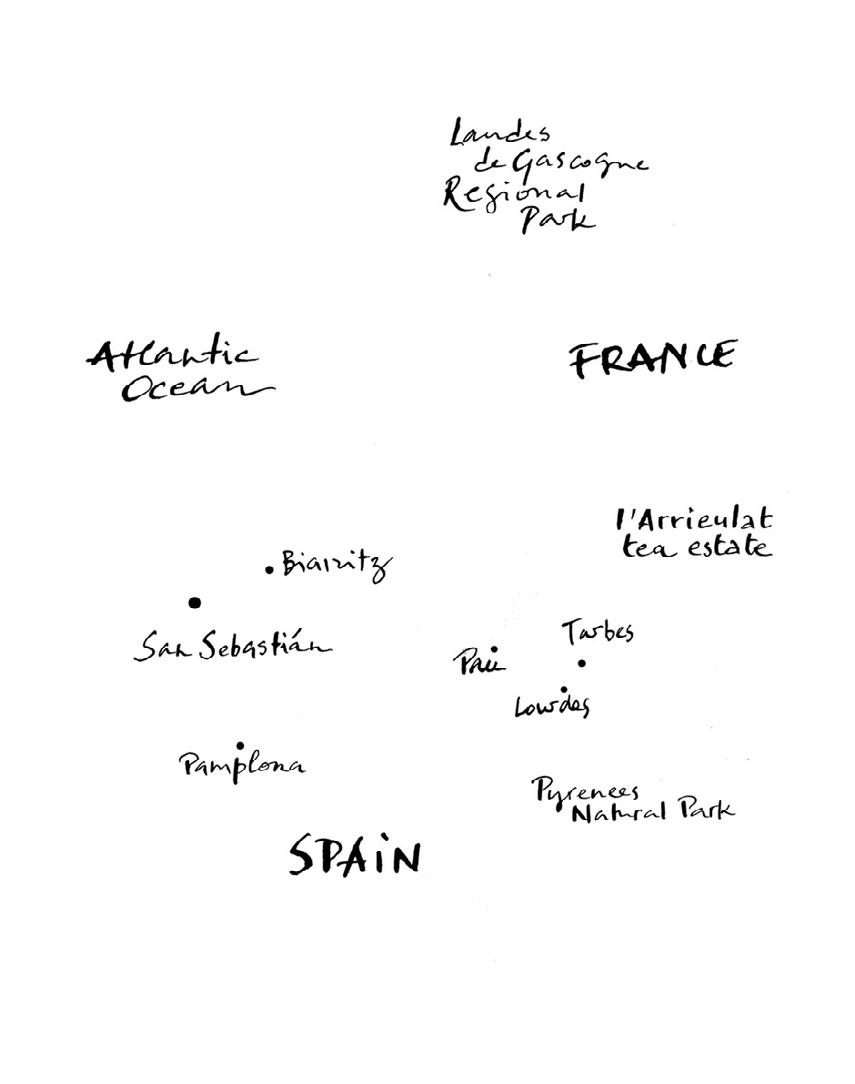 Landes
de Gascogne
Regional
Park
Atlantic
Ocean
FRANCE
l'Arrieulat
tea estate
Biarritz
San Sebastián
Tarbes
Pau
Lourdes
Pamplona
Pyrenees
Natural Park
SPAIN